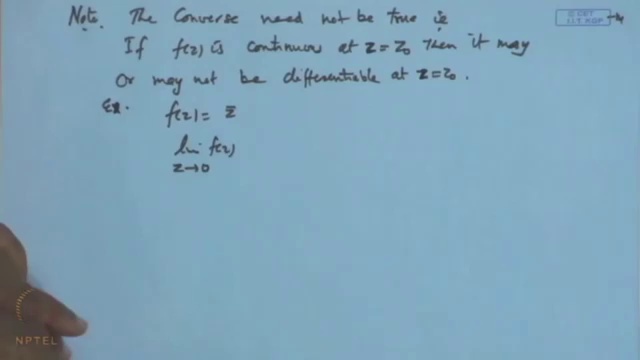 Note. The Converse need not be true ie
If f(z) is continuous at z=z₀ then it may
Or may not be differentiable at z=z₀.
Ex. f(z) = z̄
lim f(z)
z→0
© CET
I.I.T. KGP
NPTEL